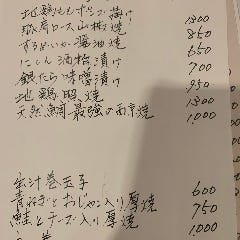 地鶏もも ポン酢漬け 1300
豚肩ロース山椒焼 850
するめいか醤油焼 650
にしん酒粕漬け 700
銀だら味噌漬け 950
地鶏 照焼 1300
天然鰤 最強の西京焼 1000
出汁巻玉子 600
青ねぎとおじゃこ入り厚焼 750
鮭とチーズ入り厚焼 1,000